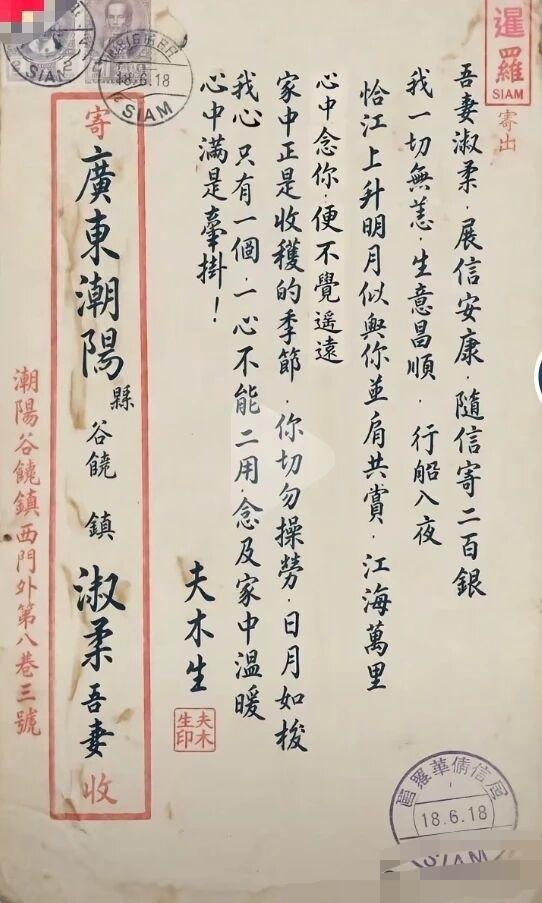 暹羅
SIAM
寄出
吾妻淑柔．展信安康．隨信寄二百銀
我一切無恙．生意昌順．行船入夜
恰江上升明月似與你並肩共賞．江海萬里
心中念你．便不覺遥遠
家中正是收穫的季節．你切勿操勞．日月如梭
我心只有一個．一心不能二用．念及家中溫暖
心中滿是牽掛！
夫木生
夫木
生印
寄
廣東潮陽縣谷饒鎮淑柔吾妻
收
潮陽谷饒鎮西門外第八巷三號
SIAM
18.6.18
SIAM
18.6.18
SIAM